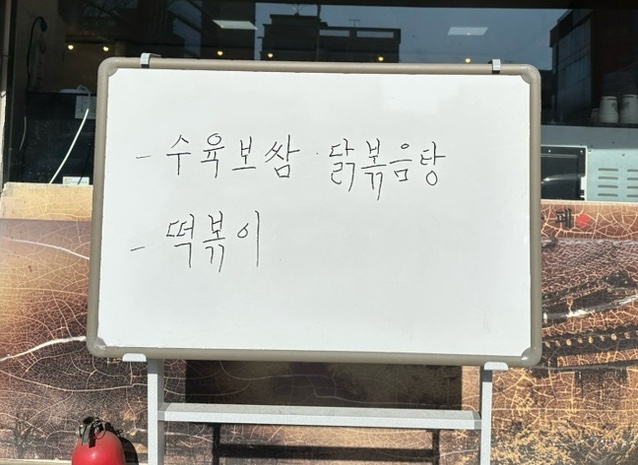 - 수육보쌈 · 닭볶음탕
- 떡볶이
페